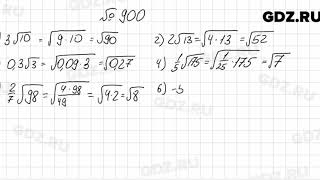 № 900
GDZ.RU
3√10 = √(9·10) = √90
2) 2√13 = √(4·13) = √52
0,3√3 = √(0,09·3) = √0,27
4) 1/5√175 = √(1/25·175) = √7
2/7√98 = √(4·98/49) = √(4·2) = √8
6) -5